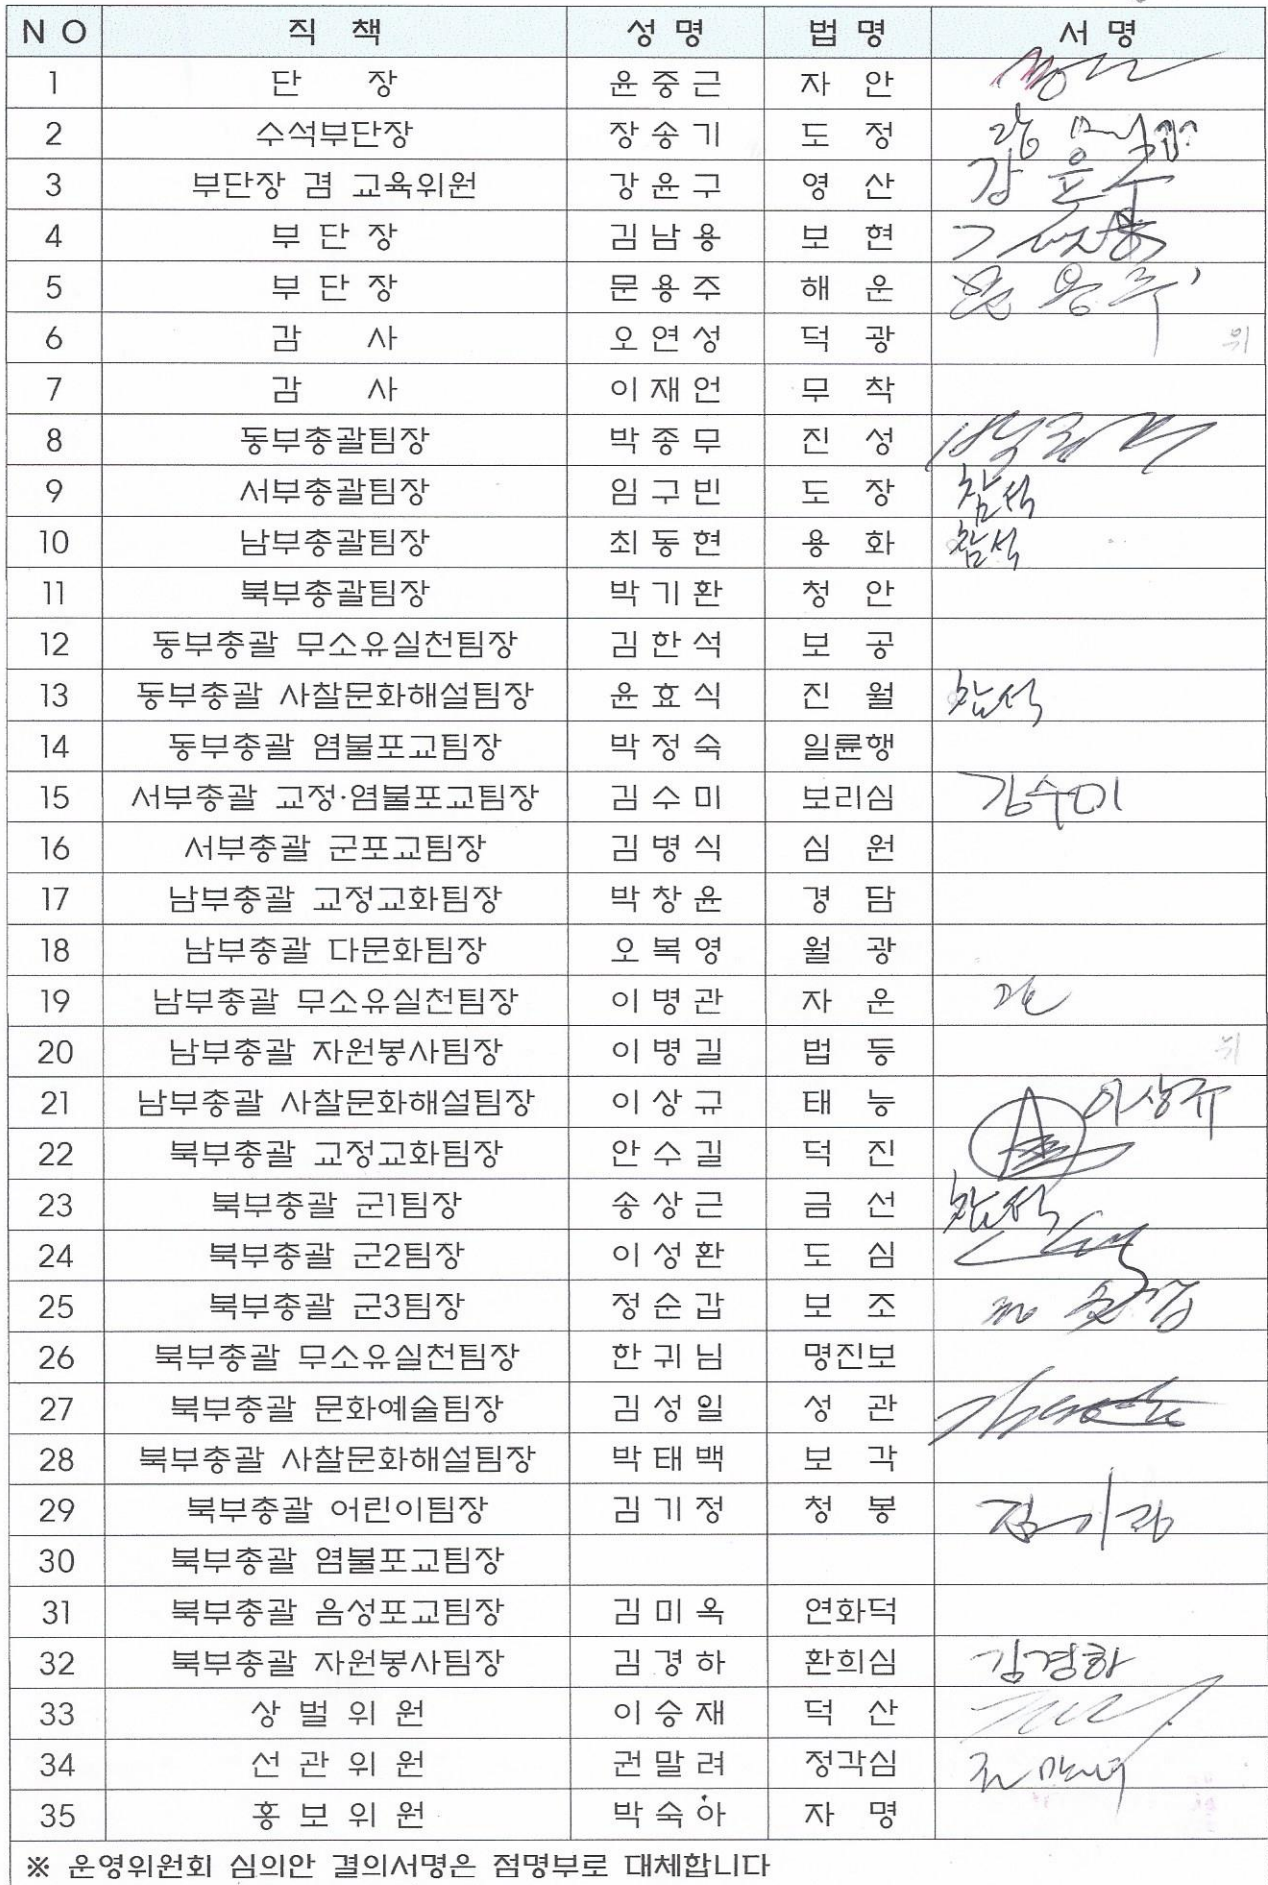 NO 직 책 성명 법명 서명
1 단 장 윤중근 자 안
2 수석부단장 장송기 도 정
3 부단장 겸 교육위원 강윤구 영 산 강윤구
4 부단장 김남용 보 현
5 부단장 문용주 해 운 문용주
6 감 사 오연성 덕 광 위
7 감 사 이재언 무 착
8 동부총괄팀장 박종무 진 성 박종무
9 서부총괄팀장 임구빈 도 장 참석
10 남부총괄팀장 최동현 용 화 참석
11 북부총괄팀장 박기환 청 안
12 동부총괄 무소유실천팀장 김한석 보 공
13 동부총괄 사찰문화해설팀장 윤효식 진 월 참석
14 동부총괄 염불포교팀장 박정숙 일륜행
15 서부총괄 교정·염불포교팀장 김수미 보리심 김수미
16 서부총괄 군포교팀장 김병식 심 원
17 남부총괄 교정교화팀장 박창윤 경 담
18 남부총괄 다문화팀장 오복영 월 광
19 남부총괄 무소유실천팀장 이병관 자 운
20 남부총괄 자원봉사팀장 이병길 법 등 위
21 남부총괄 사찰문화해설팀장 이상규 태 능 이상규
22 북부총괄 교정교화팀장 안수길 덕 진
23 북부총괄 군1팀장 송상근 금 선 참석
24 북부총괄 군2팀장 이성환 도 심
25 북부총괄 군3팀장 정순갑 보 조
26 북부총괄 무소유실천팀장 한귀님 명진보
27 북부총괄 문화예술팀장 김성일 성 관
28 북부총괄 사찰문화해설팀장 박태백 보 각
29 북부총괄 어린이팀장 김기정 청 봉
30 북부총괄 염불포교팀장
31 북부총괄 음성포교팀장 김미옥 연화덕
32 북부총괄 자원봉사팀장 김경하 환희심 김경하
33 상벌위원 이승재 덕 산
34 선관위원 권말려 정각심
35 홍보위원 박숙아 자 명
※ 운영위원회 심의안 결의서명은 점명부로 대체합니다